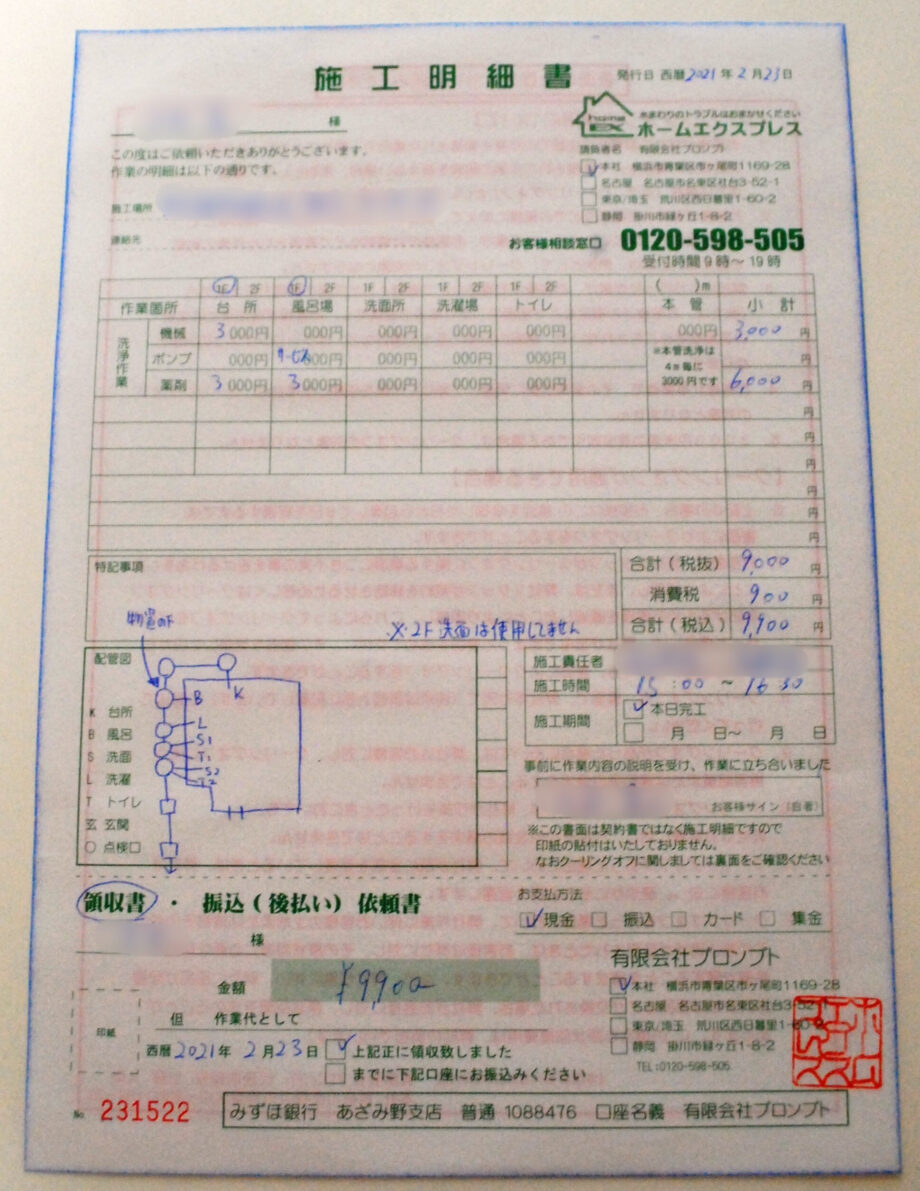 施工明細書
発行日 西暦2021年2月23日
様
home EX
水まわりのトラブルはおまかせください
ホームエクスプレス
この度はご依頼いただきありがとうございます。
作業の明細は以下の通りです。
請負者名 有限会社プロンプト
本社 横浜市青葉区市ヶ尾町1169-28
名古屋 名古屋市名東区社台3-52-1
東京/埼玉 荒川区西日暮里1-60-2
静岡 掛川市緑ヶ丘1-8-2
施工場所
連絡先
お客様相談窓口 0120-598-505
受付時間9時〜19時
作業箇所 1F 2F 台所 1F 2F 風呂場 1F 2F 洗面所 1F 2F 洗濯場 1F 2F トイレ ( )m 本管 小計
洗浄作業
機械 3000円 000円 000円 000円 000円 000円 3,000円
ポンプ 000円 サービス000円 000円 000円 000円 円
薬剤 3000円 3000円 000円 000円 000円 6,000円
※本管洗浄は
4m毎に
3000円です
円
円
円
円
円
円
特記事項
※2F洗面は使用してません
合計(税抜) 9,000円
消費税 900円
合計(税込) 9,900円
物置の下
配管図
K 台所
B 風呂
S 洗面
L 洗濯
T トイレ
玄 玄関
○ 点検口
K
B
L
S1
T1
S2
T2
施工責任者
施工時間 15:00 〜 16:30
施工期間
本日完工
月 日〜 月 日
事前に作業内容の説明を受け、作業に立ち合いました
お客様サイン(自著)
※この書面は契約書ではなく施工明細ですので
印紙の貼付はいたしておりません。
なおクーリングオフに関しましては裏面をご確認ください
領収書・振込(後払い)依頼書
様
お支払方法
現金 振込 カード 集金
金額 ¥9,900-
但 作業代として
印紙
西暦2021年2月23日 上記正に領収致しました
までに下記口座にお振込みください
有限会社プロンプト
本社 横浜市青葉区市ヶ尾町1169-28
名古屋 名古屋市名東区社台3-52-1
東京/埼玉 荒川区西日暮里1-60-2
静岡 掛川市緑ヶ丘1-8-2
TEL:0120-598-505
No. 231522
みずほ銀行 あざみ野支店 普通 1088476 口座名義 有限会社プロンプト